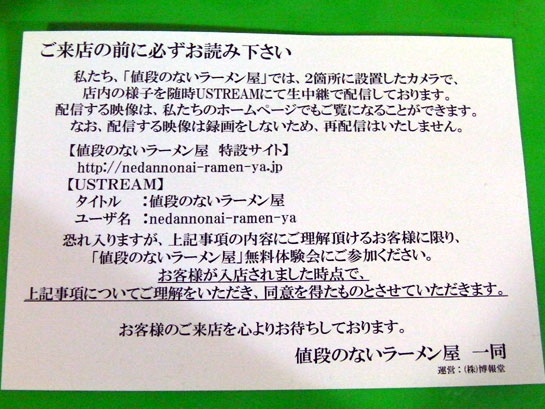 ご来店の前に必ずお読み下さい
私たち、「値段のないラーメン屋」では、2箇所に設置したカメラで、
店内の様子を随時USTREAMにて生中継で配信しております。
配信する映像は、私たちのホームページでもご覧になることができます。
なお、配信する映像は録画をしないため、再配信はいたしません。
【値段のないラーメン屋 特設サイト】
http://nedannonai-ramen-ya.jp
【USTREAM】
タイトル :値段のないラーメン屋
ユーザ名 :nedannonai-ramen-ya
恐れ入りますが、上記事項の内容にご理解頂けるお客様に限り、
「値段のないラーメン屋」無料体験会にご参加ください。
お客様が入店されました時点で、
上記事項についてご理解をいただき、同意を得たものとさせていただきます。
お客様のご来店を心よりお待ちしております。
値段のないラーメン屋 一同
運営:(株)博報堂